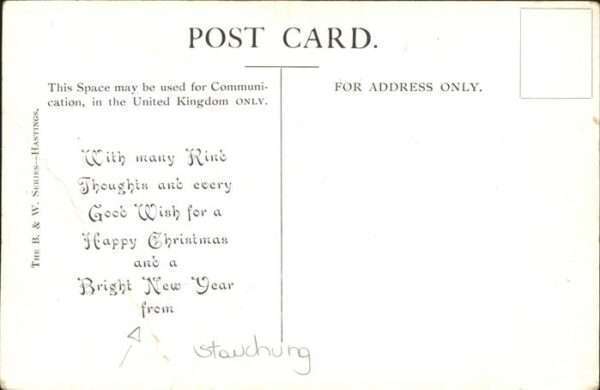 POST CARD.
This Space may be used for Communi-
cation, in the United Kingdom ONLY.
FOR ADDRESS ONLY.
THE B. & W. SERIES—HASTINGS.
With many Kind
Thoughts and every
Good Wish for a
Happy Christmas
and a
Bright New Year
from
Stauchung